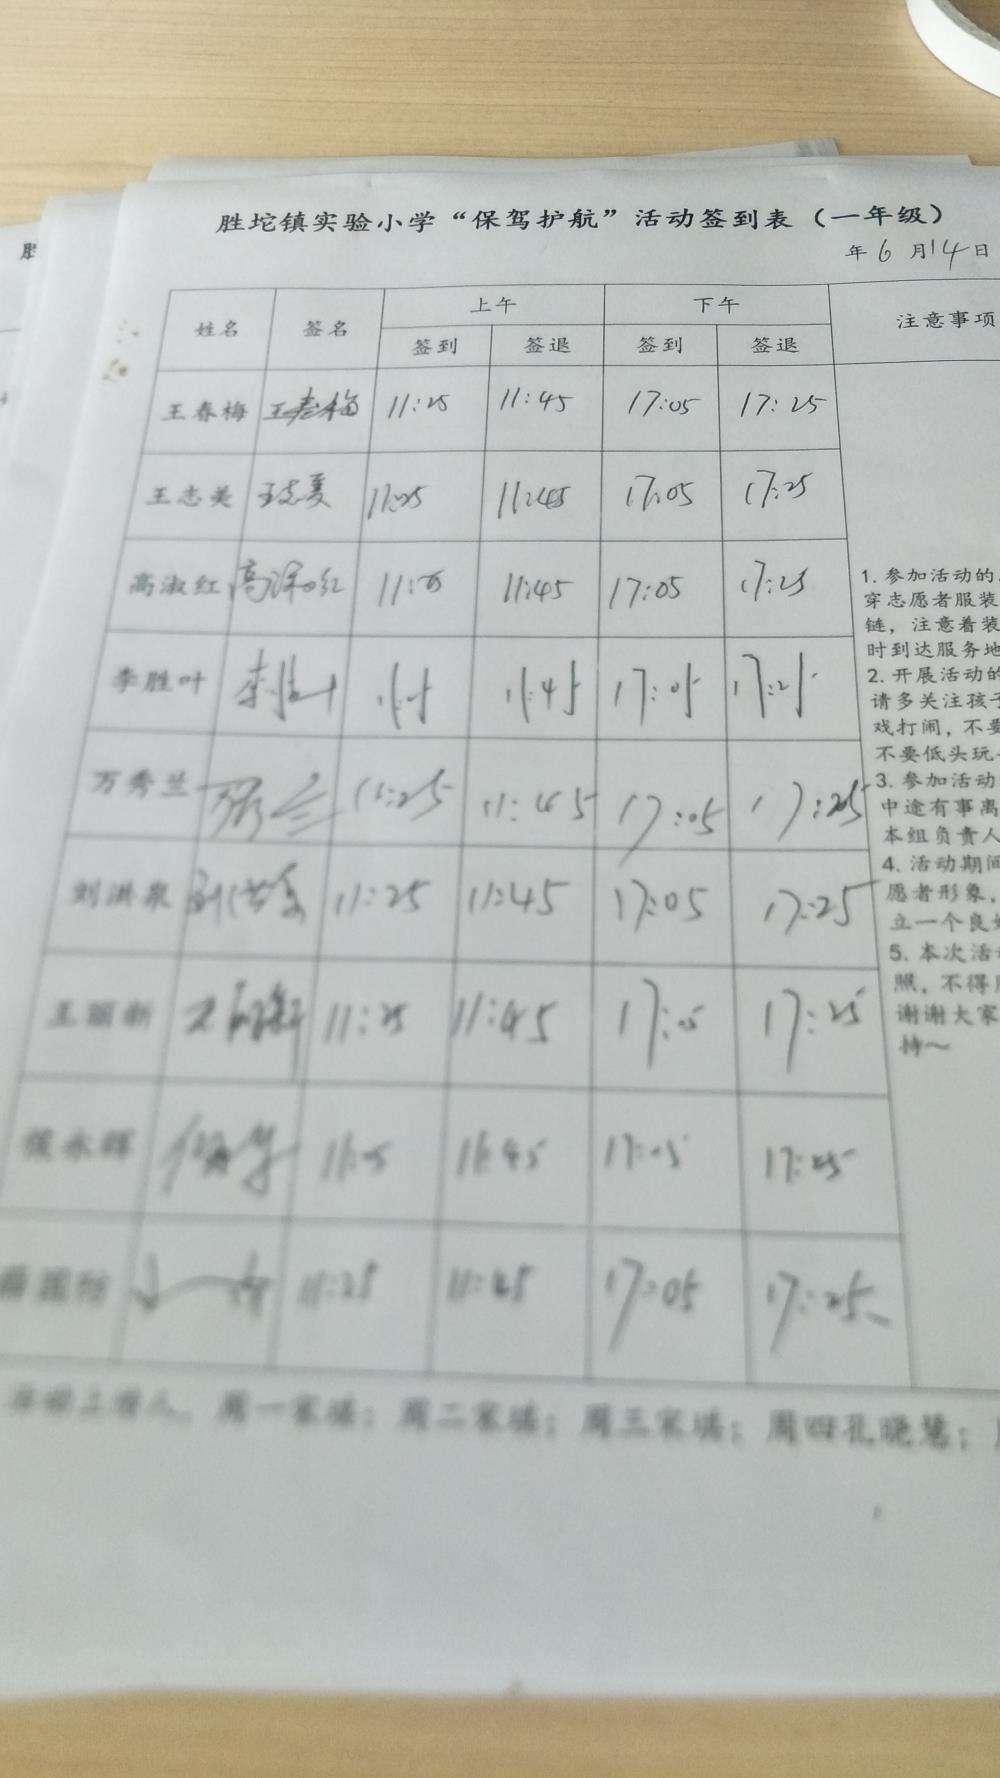 胜坨镇实验小学“保驾护航”活动签到表（一年级）
年 6 月 14 日
姓名 签名 上午 下午 注意事项
签到 签退 签到 签退
王春梅 王春梅 11:25 11:45 17:05 17:25
王志美 王志美 11:25 11:45 17:05 17:25
高淑红 高淑红 11:25 11:45 17:05 17:25
李胜叶 李胜叶 11:45 17:05 17:25
万秀兰 万秀兰 11:25 11:45 17:05 17:25
刘洪泉 刘洪泉 11:25 11:45 17:05 17:25
王丽新 王丽新 11:25 11:45 17:05 17:25
侯永辉 11:45 17:05 17:25
11:25 11:45 17:05 17:25
1. 参加活动的
穿志愿者服装
链，注意着装
时到达服务地
2. 开展活动的
请多关注孩子
戏打闹，不要
不要低头玩
3. 参加活动
中途有事离
本组负责人
4. 活动期间
愿者形象，
立一个良好
5. 本次活动
照，不得
谢谢大家
持～
周一家瑶；周二家瑶；周三家瑶；周四孔晓慧；